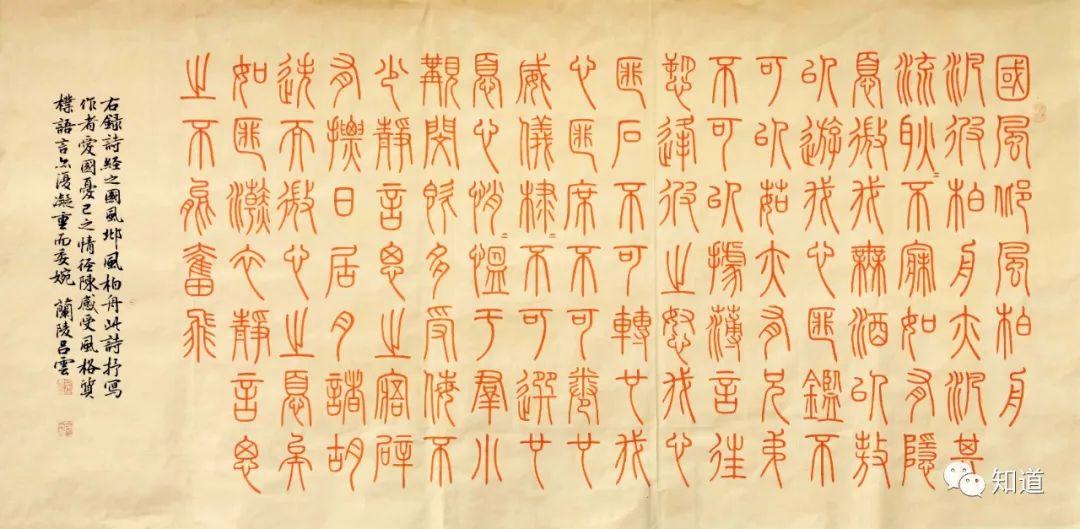 國風邶風柏舟
汎彼柏舟亦汎其
流耿=不寐如有隱
憂微我無酒以敖
以遊我心匪鑑不
可以茹亦有兄弟
不可以據薄言往
愬逢彼之怒我心
匪石不可轉也我
心匪席不可卷也
威儀棣=不可選也
憂心悄=慍于羣小
覯閔既多受侮不
少靜言思之寤辟
有摽日居月諸胡
迭而微心之憂矣
如匪澣衣靜言思
之不能奮飛
右錄詩經之國風邶風柏舟此詩抒寫
作者愛國憂己之情徑陳感受風格質
樸語言亦復凝重而委婉 蘭陵呂雲
知道